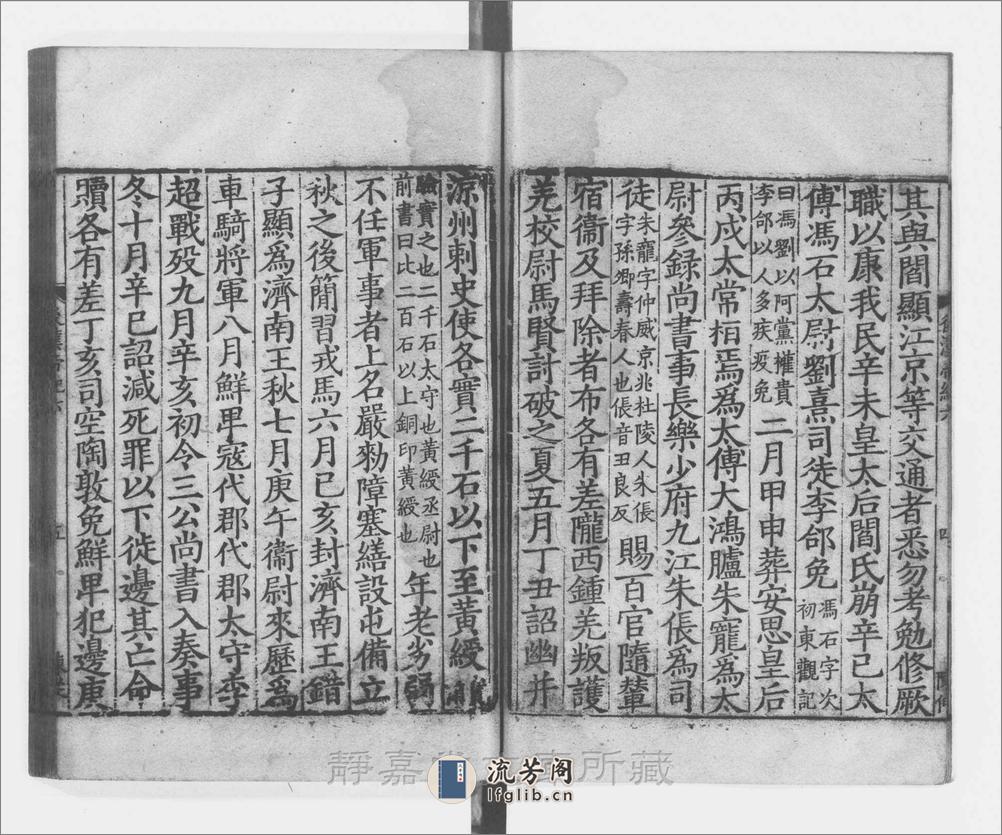 其與閻顯江京等交通者悉勿考勉修厥
職以康我民辛未皇太后閻氏崩辛巳太
傅馮石太尉劉熹司徒李郃免馮石字次初東觀記
曰馮劉以阿黨權貴李郃以人多疾疫免二月甲申葬安思皇后
丙戌太常桓焉為太傅大鴻臚朱寵為太
尉參錄尚書事長樂少府九江朱倀為司
徒朱寵字仲威京兆杜陵人朱倀字孫卿壽春人也倀音丑良反賜百官隨輦
宿衞及拜除者布各有差隴西鍾羌叛護
羌校尉馬賢討破之夏五月丁丑詔幽并
涼州刺史使各實二千石以下至黃綬
驗實之也二千石太守也黃綬丞尉也前書曰比二百石以上銅印黃綬也年老劣弱
不任軍事者上名嚴勑障塞繕設屯備立
秋之後簡習戎馬六月己亥封濟南王錯
子顯為濟南王秋七月庚午衞尉來歷為
車騎將軍八月鮮卑寇代郡代郡太守李
超戰歿九月辛亥初令三公尚書入奏事
冬十月辛巳詔減死罪以下徙邊其亡命
贖各有差丁亥司空陶敦免鮮卑犯邊庚
靜嘉
所藏
流芳阁
lfglib.cn